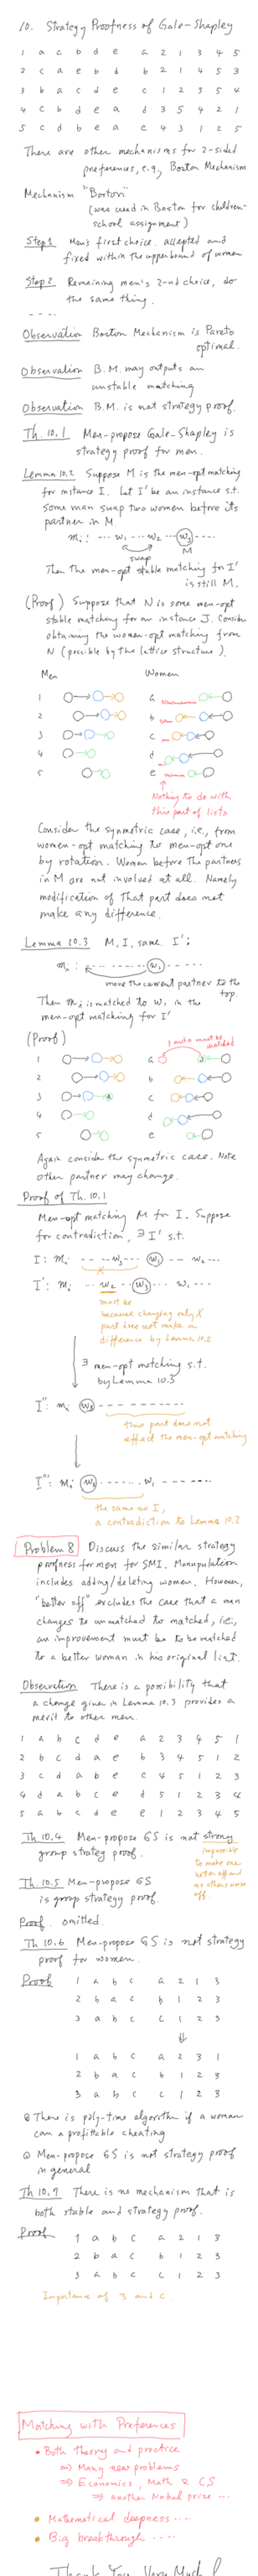 10. Strategy Proofness of Gale-Shapley
1 a c b d e a 2 1 3 4 5
2 c a e b d b 2 1 4 5 3
3 b a c d e c 1 2 3 5 4
4 c b d e a d 3 5 4 2 1
5 c d b e a e 4 3 1 2 5
There are other mechanisms for 2-sided
preferences, e.g., Boston Mechanism
Mechanism "Boston"
(was used in Boston for children-
school assignment)
Step 1 Men's first choice. accepted and
fixed within the upperbound of women
Step 2 Remaining men's 2-nd choice, do
the same thing.
- - - -
Observation Boston Mechanism is Pareto
optimal.
Observation B.M. may outputs an
unstable matching
Observation B.M. is not strategy proof.
Th. 10.1 Men-propose Gale-Shapley is
strategy proof for men.
Lemma 10.2 Suppose M is the men-opt matching
for instance I. Let I' be an instance s.t.
some man swap two women before its
partner in M.
mi: --- w1 --- w2 --- w3 ---
swap M
Then the men-opt stable matching for I'
is still M.
(Proof) Suppose that N is some men-opt
stable matching for an instance J. Consider
obtaining the women-opt matching from
N (possible by the lattice structure).
Men Women
1 a
2 b
3 c
4 d
5 e
Nothing to do with
this part of lists
Consider the symmetric case, i.e., from
women-opt matching to men-opt one
by rotation. Women before the partners
in M are not involved at all. Namely
modification of that part does not
make any difference.
Lemma 10.3 M, I, same. I':
mi: - - - - - - - - w1 - - - - -
move the current partner to the
top.
Then mi is matched to w1 in the
men-opt matching for I'
(Proof)
3 and a must be
matched
1 a
2 b
3 c
4 d
5 e
Again consider the symmetric case. Note
other partner may change.
Proof of Th. 10.1
Men-opt matching M for I. Suppose
for contradiction, ∃ I' s.t.
I: mi --- w3 --- w1 -- w2 ---
X
I': mi --- w2 -- w3 --- w1 ---
must be
because changing only X
part does not make a
difference by Lemma 10.2
∃ men-opt matching s.t.
by Lemma 10.3
I'': mi w3 - - - - - - - - -
this part does not
effect the men-opt matching
I''': mi w3 - - - - - w1 - - - - -
the same as I,
a contradiction to Lemma 10.2
Problem 8 Discuss the similar strategy
proofness for men for SMI. Manupulation
includes adding/deleting women. However,
"better off" excludes the case that a man
changes to unmatched to matched, i.e.,
an improvement must be to be matched
to a better woman in his original list.
Observation There is a possibility that
a change given in Lemma 10.3 provides a
merit to other men.
1 a b c d e a 2 3 4 5 1
2 b c d a e b 3 4 5 1 2
3 c d a b e c 4 5 1 2 3
4 d a b c e d 5 1 2 3 4
5 a b c d e e 1 2 3 4 5
Th 10.4 Men-propose GS is not strong
group strategy proof.
impossible
to make one
better off and
no others worse
off
Th. 10.5 Men-propose GS
is group strategy proof.
Proof. omitted.
Th 10.6 Men-propose GS is not strategy
proof for women.
Proof 1 a b c a 2 1 3
2 b a c b 1 2 3
3 a b c c 1 2 3
⇓
1 a b c a 2 3 1
2 b a c b 1 2 3
3 a b c c 1 2 3
There is poly-time algorithm if a woman
can a profitable cheating
Men-propose GS is not strategy proof
in general
Th 10.7 There is no mechanism that is
both stable and strategy proof.
Proof 1 a b c a 2 1 3
2 b a c b 1 2 3
3 a b c c 1 2 3
Importance of 3 and c.
Matching with Preferences
Both theory and practice
⇒ Many new problems
⇒ Economics, Math & CS
⇒ another Nobel prize ---
Mathematical deepness ----
Big breakthrough ----
Thank You Very Much!